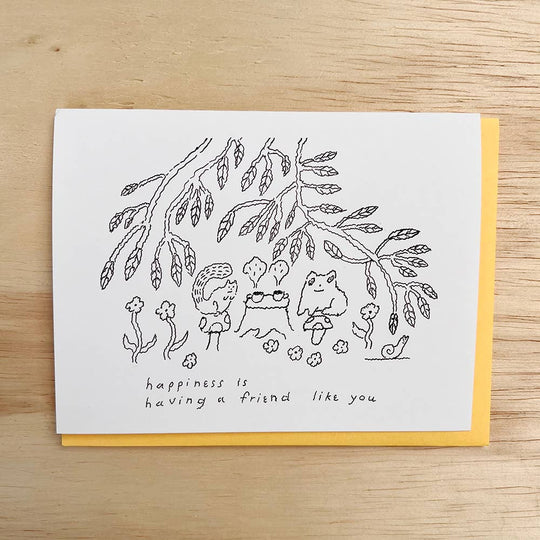 happiness is
having a friend like you